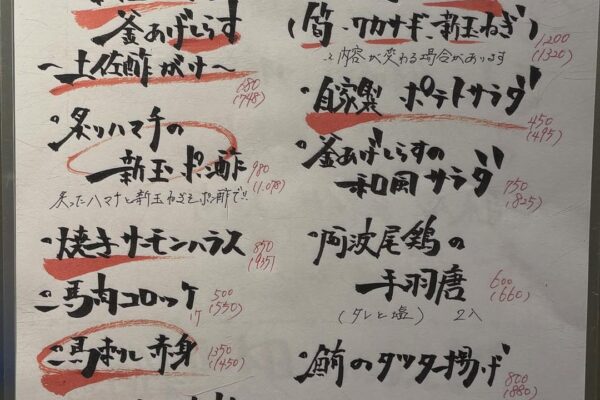 釜あげしらす
〜土佐酢がけ〜
680
(748)
・炙りハマチの
新玉ポン酢 980
(1.078)
炙ったハマチと新玉ねぎをポン酢で!!
・焼きサーモンハラス 850
(935)
・馬肉コロッケ 500
1ケ (550)
・馬刺し赤身 1350
(1450)
(筍・ワカサギ・新玉ねぎ) 1200
(1320)
※内容が変わる場合があります
・自家製 ポテトサラダ 450
(495)
・釜あげしらすの
和風サラダ 750
(825)
・阿波尾鶏の
手羽唐 600
(660)
(タレと塩) 2入
・鮪のタツタ揚げ 800
(880)